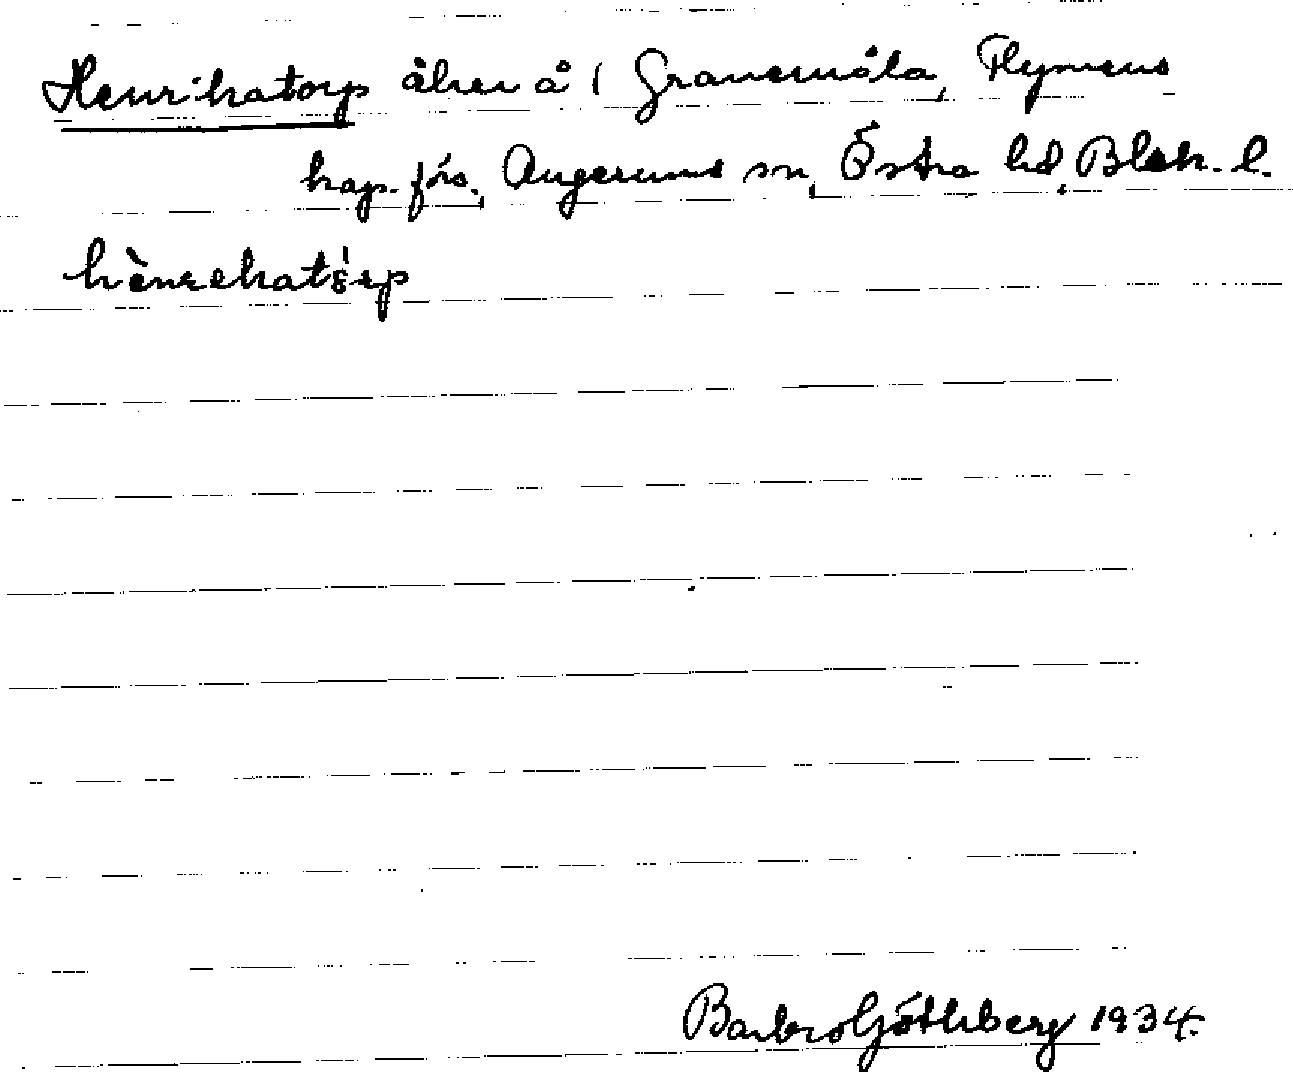 Henrikatorp åker å i Granemåla, Flymens
kap. förs., Augerums sn, Östra hd, Blek. l.
Barbro Göthberg 1934.